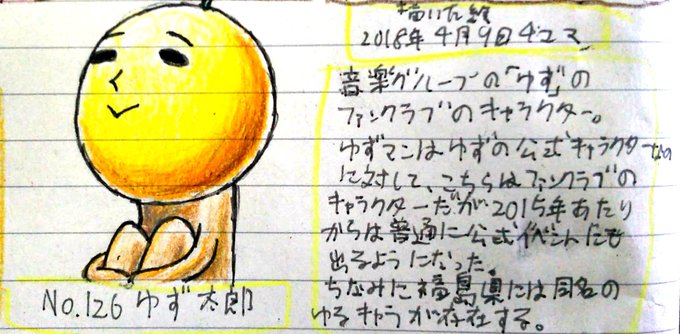 描いた絵
2018年4月9日4コマ
音楽グループの「ゆず」の
ファンクラブのキャラクター。
ゆずマンはゆずの公式キャラクターなの
に対して、こちらはファンクラブの
キャラクターだが2015年あたり
からは普通に公式イベントにも
出るようになった。
ちなみに福島県には同名の
ゆるキャラが存在する。
No.126 ゆず太郎